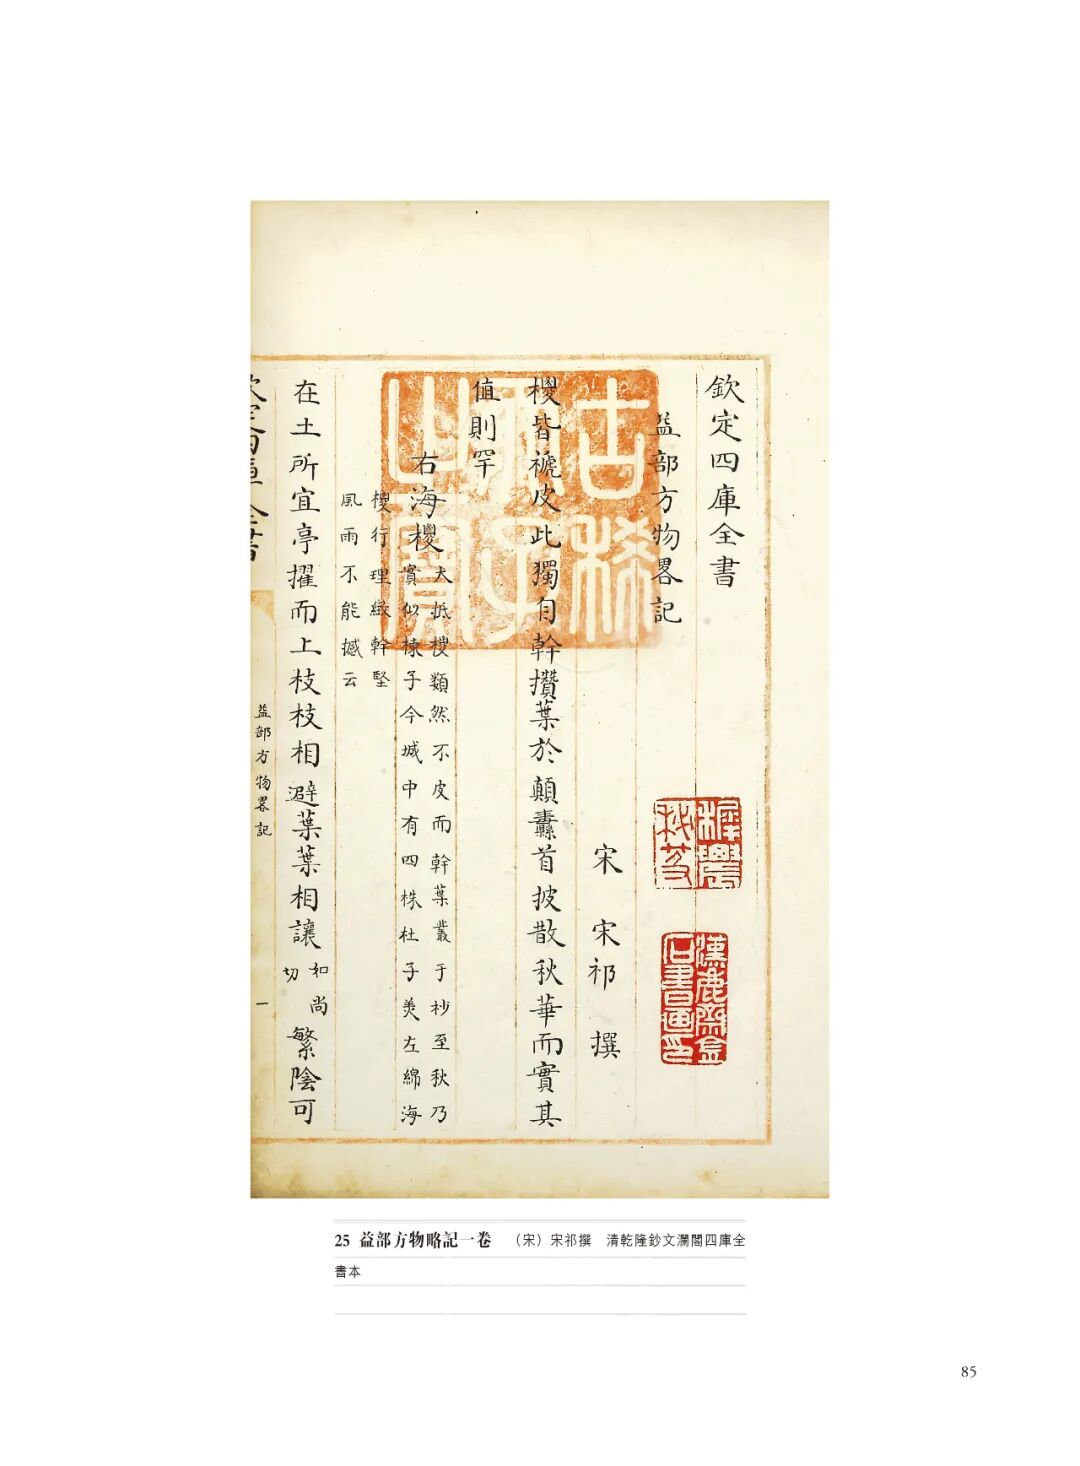 欽定四庫全書
益部方物畧記
宋 宋祁 撰
椶皆褫皮此獨自幹攢葉於顛纛首披散秋華而實其
值則罕
右海椶
大抵椶類然不皮而幹葉叢于杪至秋乃
實似楝子今城中有四株杜子美左綿海
椶行理緻幹堅
風雨不能撼云
在土所宜亭擢而上枝枝相避葉葉相讓
如尚
切
繁陰可
欽定四庫全書
益部方物畧記
一
古稀天子之寶
漢鹿齋金石書畫印
25 益部方物略記一卷 （宋）宋祁撰 清乾隆鈔文瀾閣四庫全
書本
85